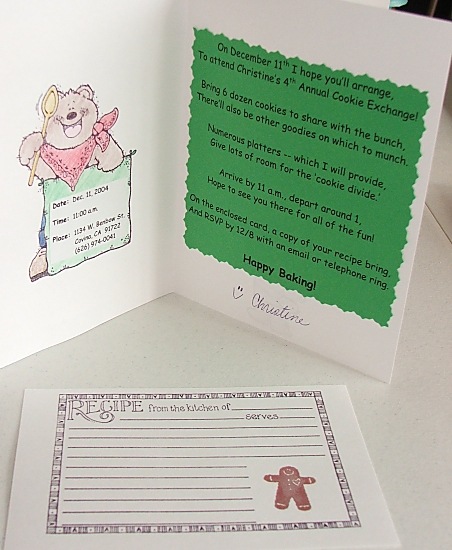 Date: Dec. 11, 2004
Time: 11:00 a.m.
Place: 1134 W. Benbow St.
Covina, CA 91722
(626) 974-0041
On December 11th I hope you'll arrange,
To attend Christine's 4th Annual Cookie Exchange!
Bring 6 dozen cookies to share with the bunch,
There'll also be other goodies on which to munch.
Numerous platters -- which I will provide,
Give lots of room for the 'cookie divide.'
Arrive by 11 a.m., depart around 1,
Hope to see you there for all of the fun!
On the enclosed card, a copy of your recipe bring,
And RSVP by 12/8 with an email or telephone ring.
Happy Baking!
Christine
RECIPE from the kitchen of
serves